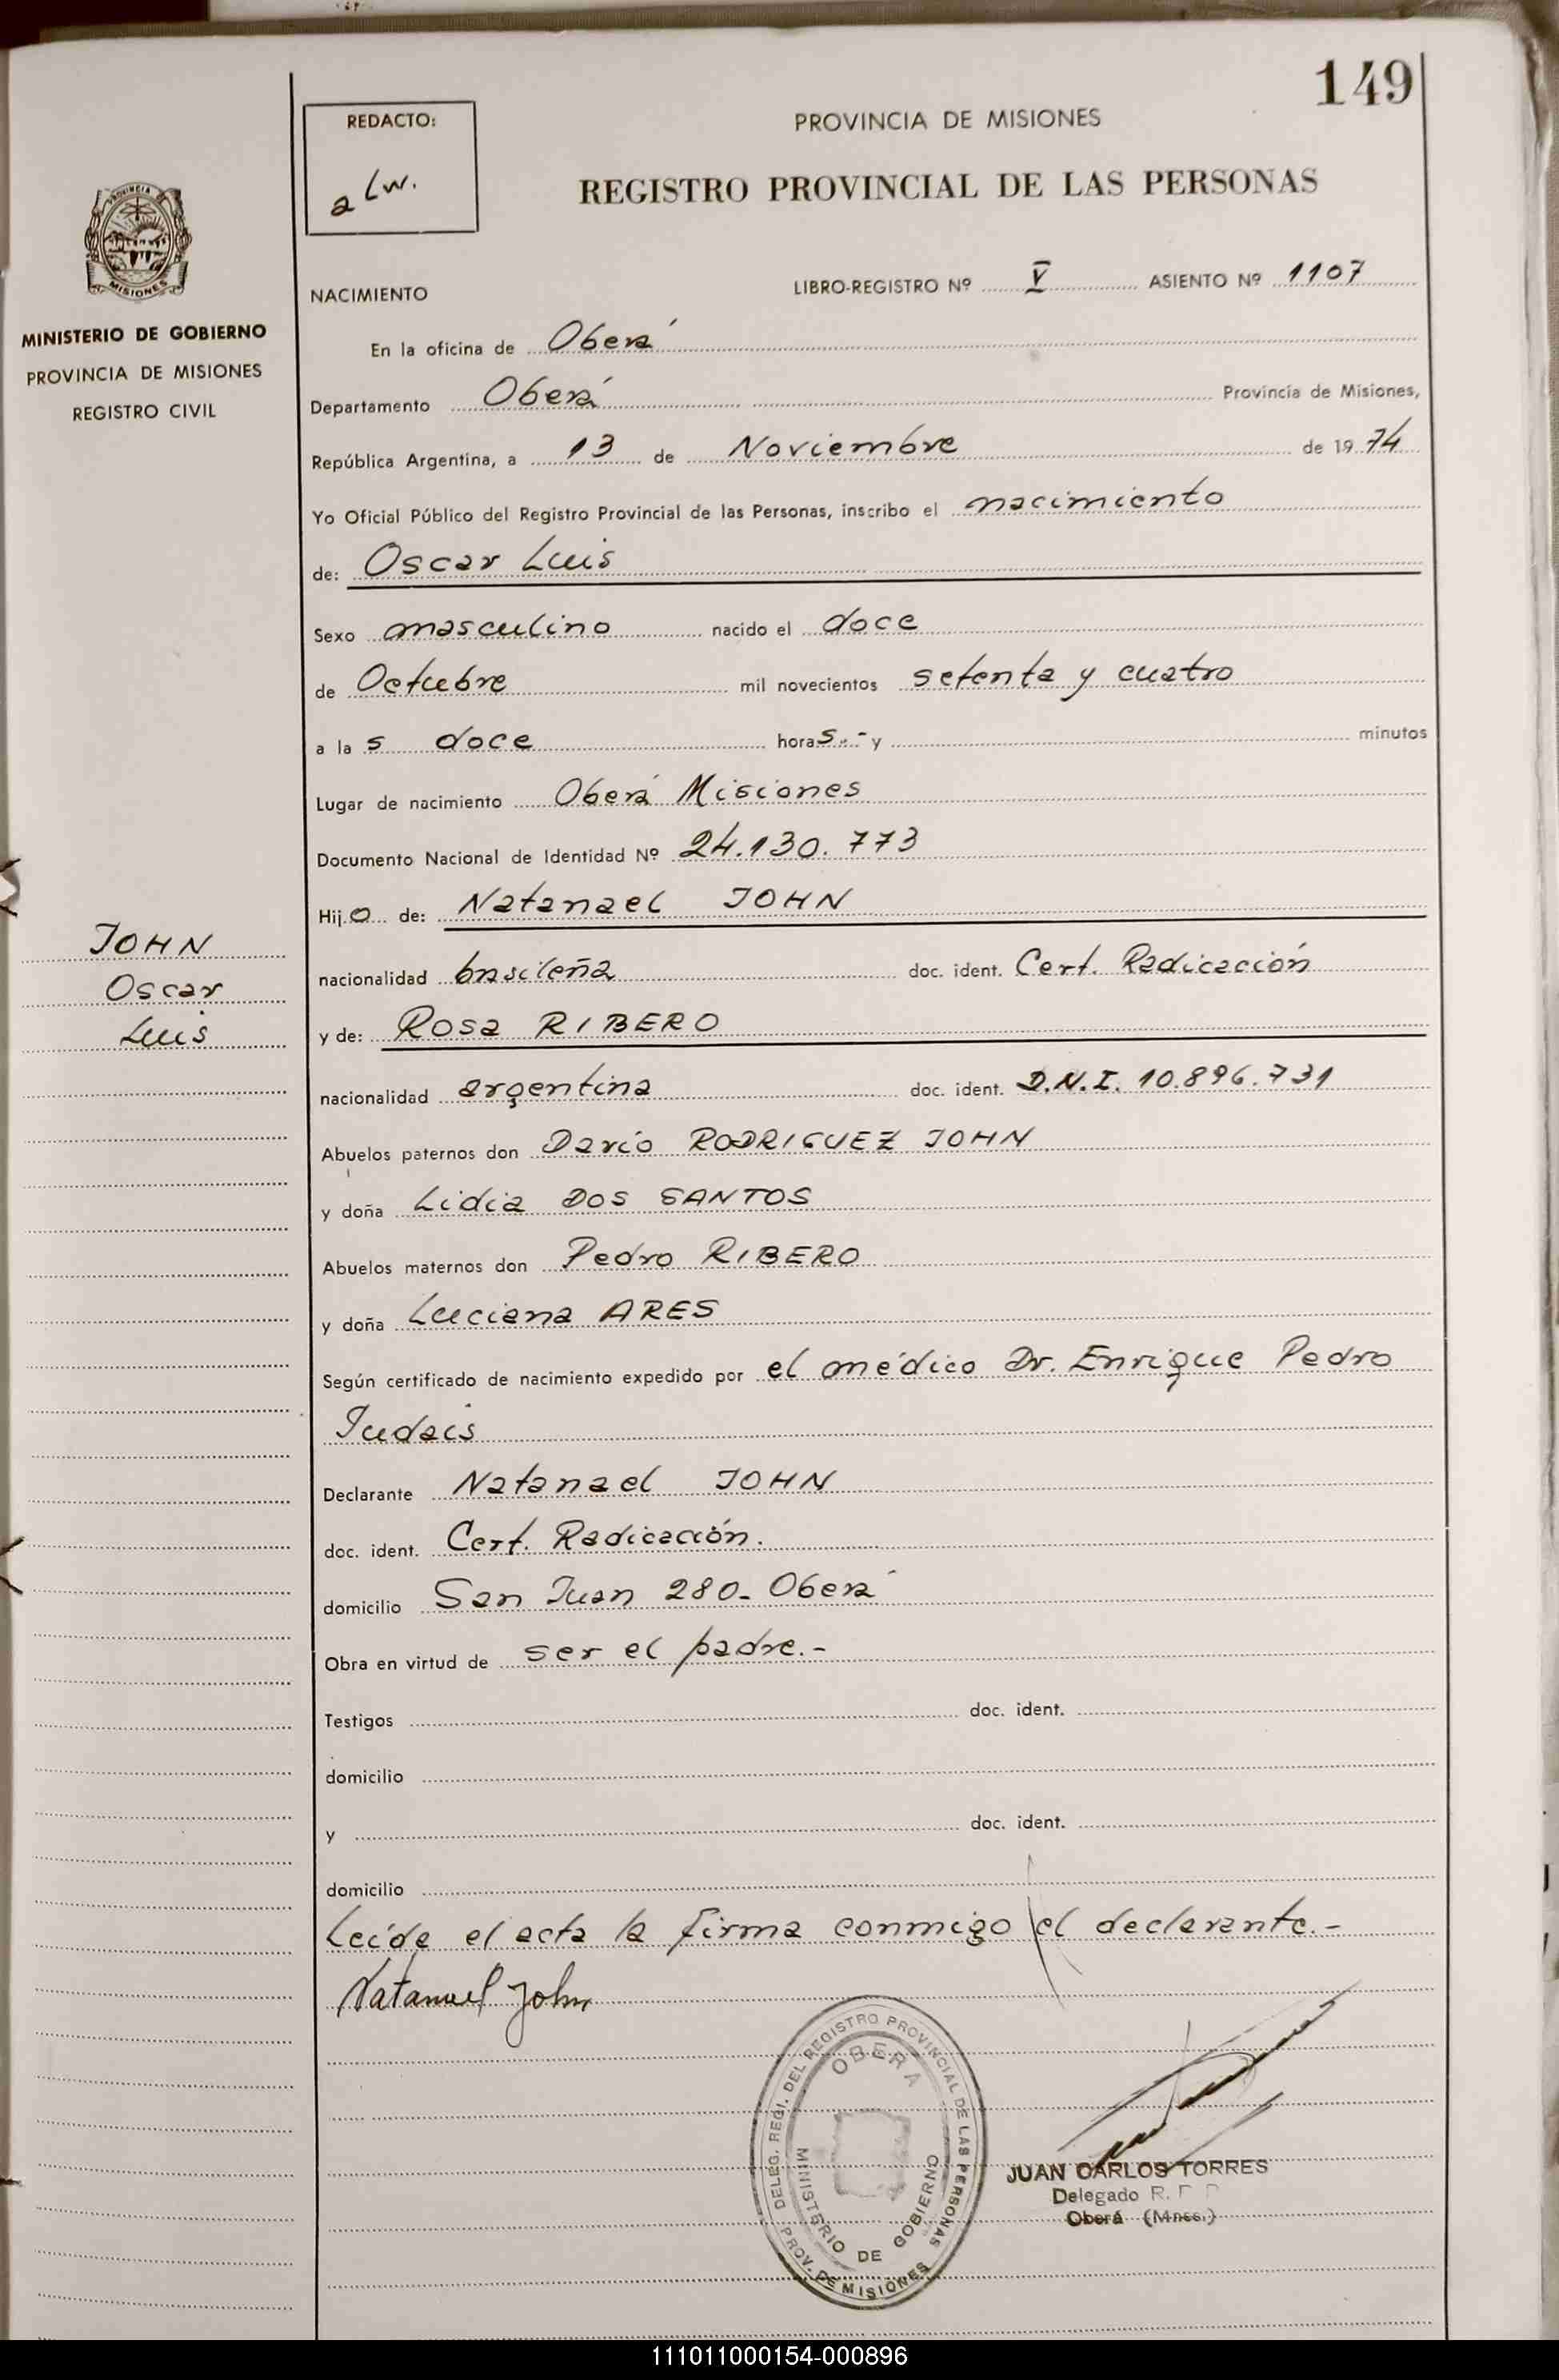 149
REDACTO:
a Lw.
PROVINCIA DE MISIONES
REGISTRO PROVINCIAL DE LAS PERSONAS
PROVINCIA
MISIONES
MINISTERIO DE GOBIERNO
PROVINCIA DE MISIONES
REGISTRO CIVIL
NACIMIENTO LIBRO-REGISTRO Nº V ASIENTO Nº 1107
En la oficina de Oberá
Departamento Oberá Provincia de Misiones,
República Argentina, a 13 de Noviembre de 1974
Yo Oficial Público del Registro Provincial de las Personas, inscribo el nacimiento
de: Oscar Luis
Sexo masculino nacido el doce
de Octubre mil novecientos setenta y cuatro
a las doce horas.- y minutos
Lugar de nacimiento Oberá Misiones
Documento Nacional de Identidad Nº 24.130.773
Hijo de: Natanael JOHN
JOHN
Oscar
Luis
nacionalidad brasileña doc. ident. Cert. Radicación
y de: Rosa RIBERO
nacionalidad argentina doc. ident. D.N.I. 10.896.731
Abuelos paternos don Darío RODRIGUEZ JOHN
y doña Lidia DOS SANTOS
Abuelos maternos don Pedro RIBERO
y doña Luciana ARES
Según certificado de nacimiento expedido por el médico Dr. Enrique Pedro
Judais
Declarante Natanael JOHN
doc. ident. Cert. Radicación.
domicilio San Juan 280- Oberá
Obra en virtud de ser el padre.-
Testigos doc. ident.
domicilio
y doc. ident.
domicilio
Leída el acta la firma conmigo el declarante.-
Natanael John
DELEG. REGI. DEL REGISTRO PROVINCIAL DE LAS PERSONAS
OBERA
MINISTERIO DE GOBIERNO
PROV. DE MISIONES
JUAN CARLOS TORRES
Delegado R.
Oberá (Mnes.)
111011000154-000896